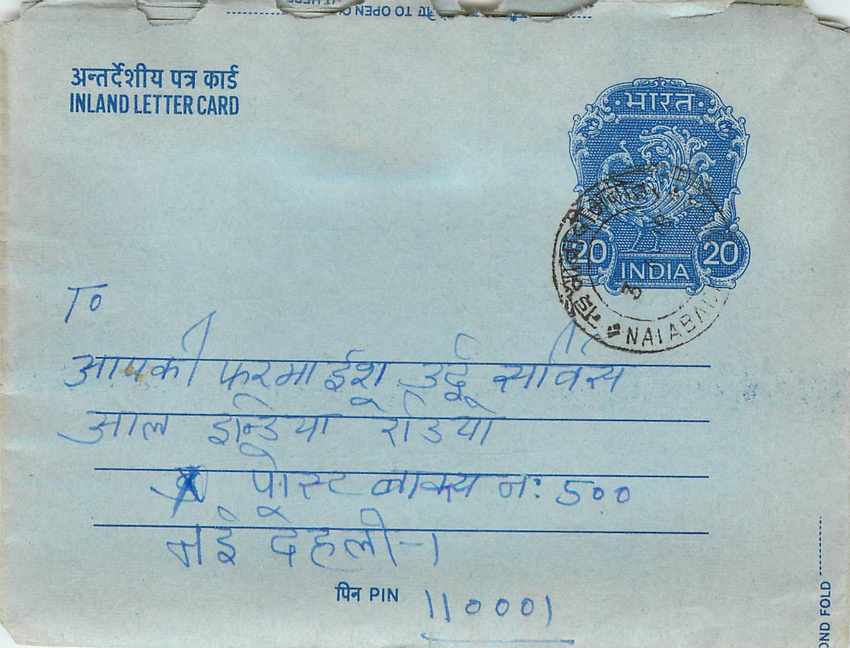 TO OPEN
अन्तर्देशीय पत्र कार्ड
INLAND LETTER CARD
भारत
20 20
INDIA
NAIABAD
To
आपकी फरमाईश उर्दू सर्विस
आल इन्डिया रेडियो
पोस्ट बाक्स न: 500
नई देहली-1
पिन PIN 110001
OND FOLD